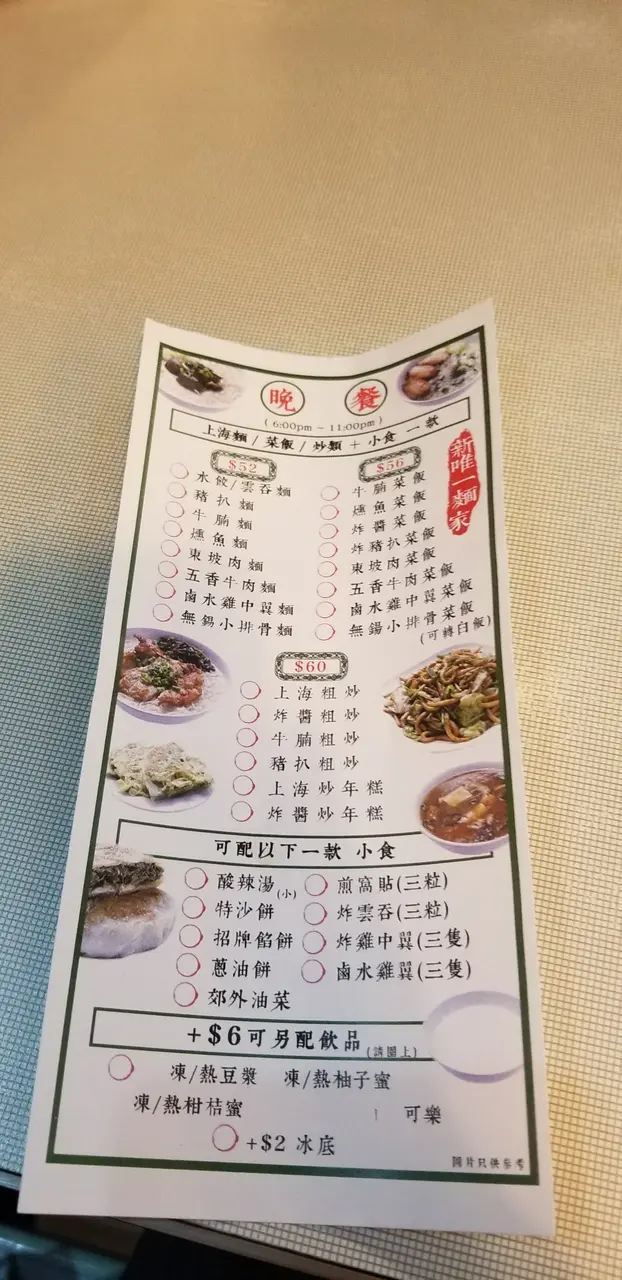 晚 餐
( 6:00pm ~ 11:00pm )
上海麵 / 菜飯 / 炒類 + 小食 一款
新唯一麵家
$52
水餃/雲吞麵
豬扒麵
牛腩麵
燻魚麵
東坡肉麵
五香牛肉麵
鹵水雞中翼麵
無錫小排骨麵
$56
牛腩菜飯
燻魚菜飯
炸醬菜飯
炸豬扒菜飯
東坡肉菜飯
五香牛肉菜飯
鹵水雞中翼菜飯
無錫小排骨菜飯
(可轉白飯)
$60
上海粗炒
炸醬粗炒
牛腩粗炒
豬扒粗炒
上海炒年糕
炸醬炒年糕
可配以下一款 小食
酸辣湯(小)
特沙餅
招牌餡餅
蔥油餅
郊外油菜
煎窩貼(三粒)
炸雲吞(三粒)
炸雞中翼(三隻)
鹵水雞翼(三隻)
+$6可另配飲品(請圈上)
凍/熱豆漿 凍/熱柚子蜜
凍/熱柑桔蜜 可樂
+$2 冰底
圖片只供參考